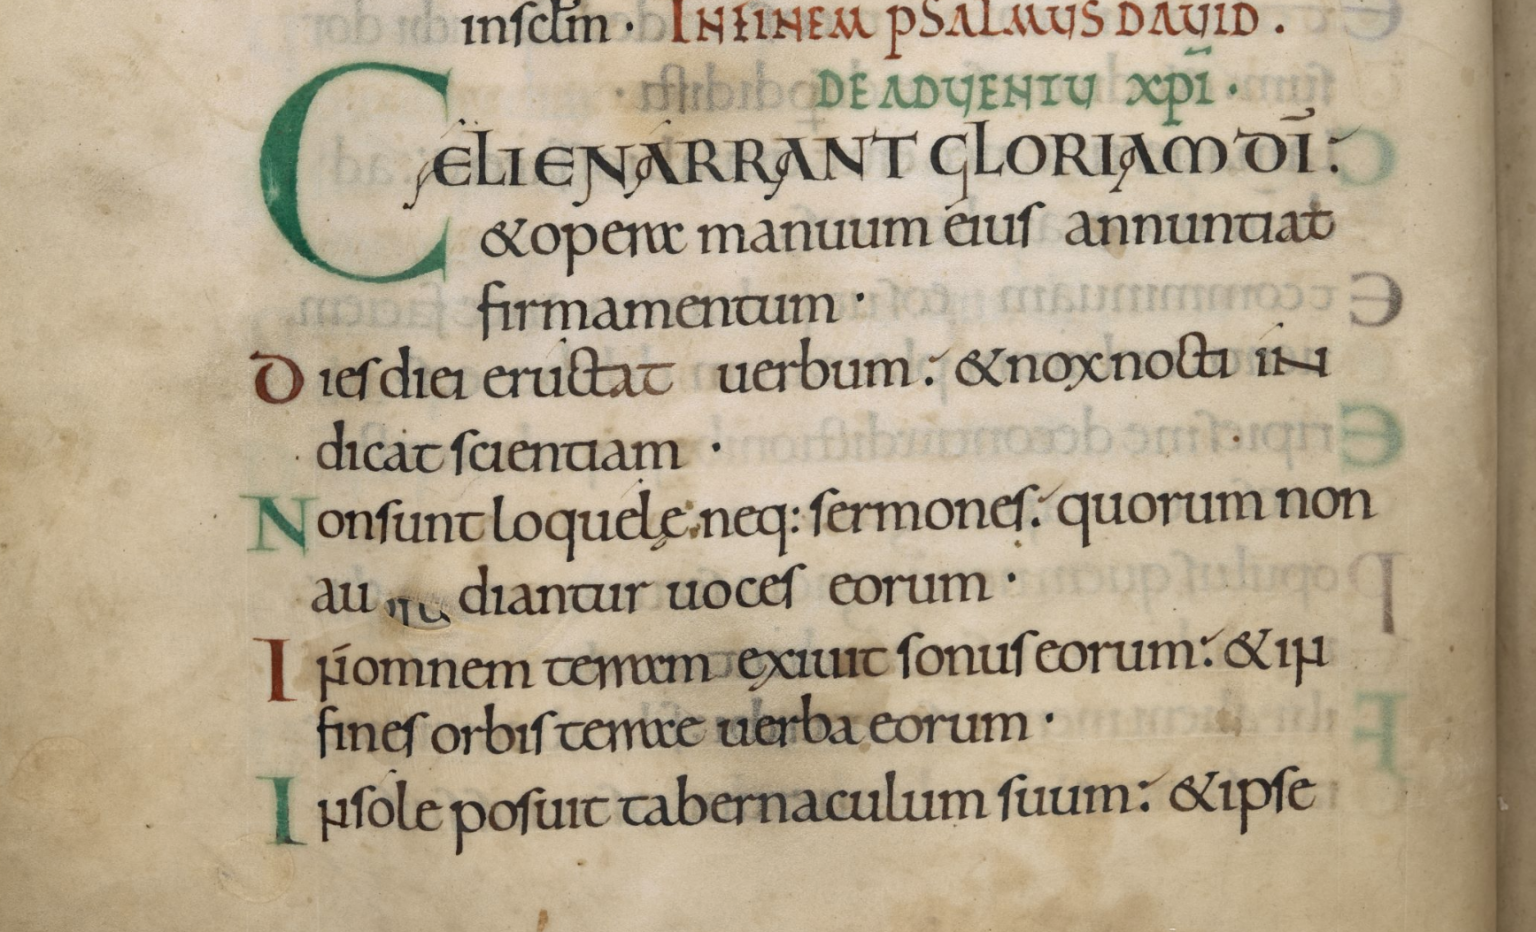 insctm · IN FINEM PSALMUS DAVID .
DE ADVENTU XPĪ ·
CELI ENARRANT GLORIAM DĪ:
&opera manuum eius annuntiat
firmamentum ·
Dies diei eructat uerbum : & nox nocti in
dicat scientiam ·
Non sunt loquelę neq: sermones : quorum non
au diantur uoces eorum ·
In omnem terram exiuit sonus eorum : & in
fines orbis terrae uerba eorum ·
In sole posuit tabernaculum suum : & ipse